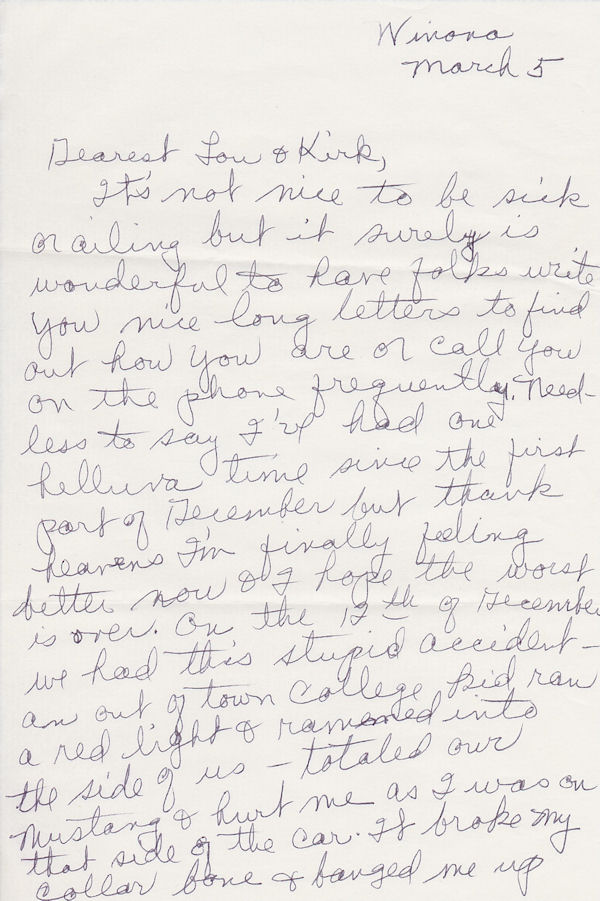 Winona
March 5
Dearest Lou & Kirk,
It's not nice to be sick
or ailing but it surely is
wonderful to have folks write
you nice long letters to find
out how you are or call you
on the phone frequently. Need-
less to say I've had one
helluva time since the first
part of December but thank
heavens I'm finally feeling
better now & I hope the worst
is over. On the 12th of December
we had this stupid accident -
an out of town College kid ran
a red light & rammed into
the side of us - totaled our
Mustang & hurt me as I was on
that side of the car. It broke my
collar bone & banged me up